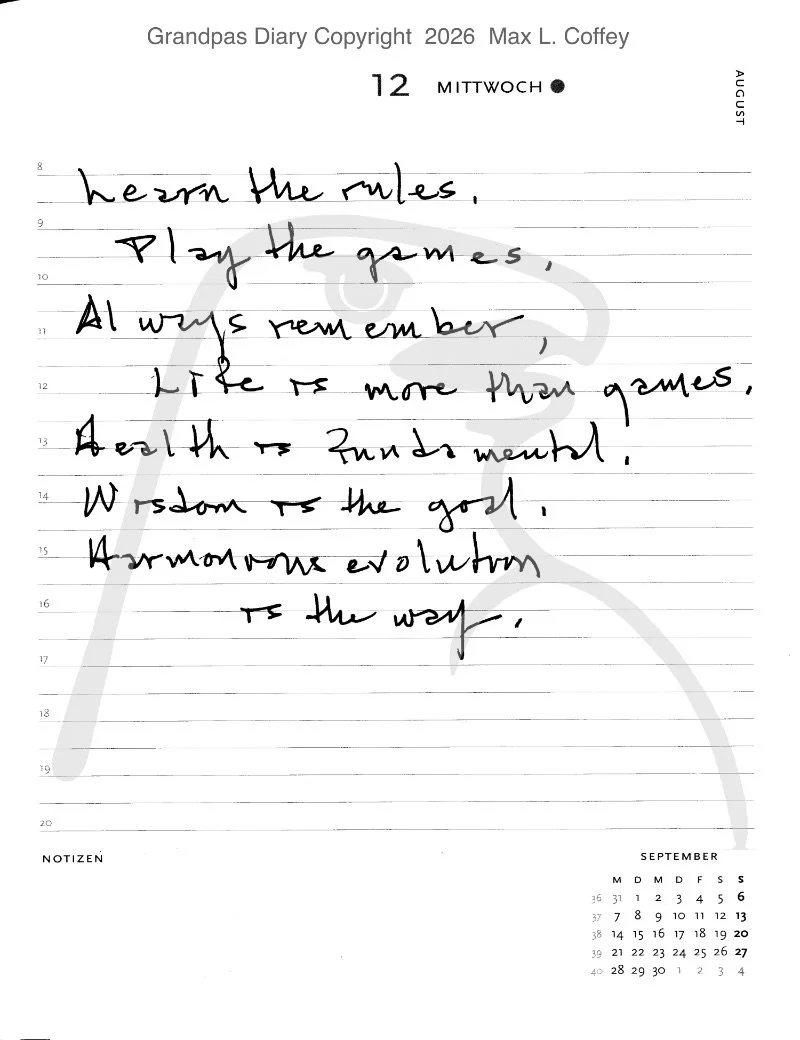 Grandpas Diary Copyright 2026 Max L. Coffey
12 MITTWOCH
AUGUST
8
Learn the rules.
9
Play the games,
10
Always remember,
11
Life is more than games.
12
Health is fundamental.
13
Wisdom is the goal.
14
Harmonious evolution
15
is the way.
16
17
18
19
20
NOTIZEN
SEPTEMBER
M D M D F S S
36 31 1 2 3 4 5 6
37 7 8 9 10 11 12 13
38 14 15 16 17 18 19 20
39 21 22 23 24 25 26 27
40 28 29 30 1 2 3 4